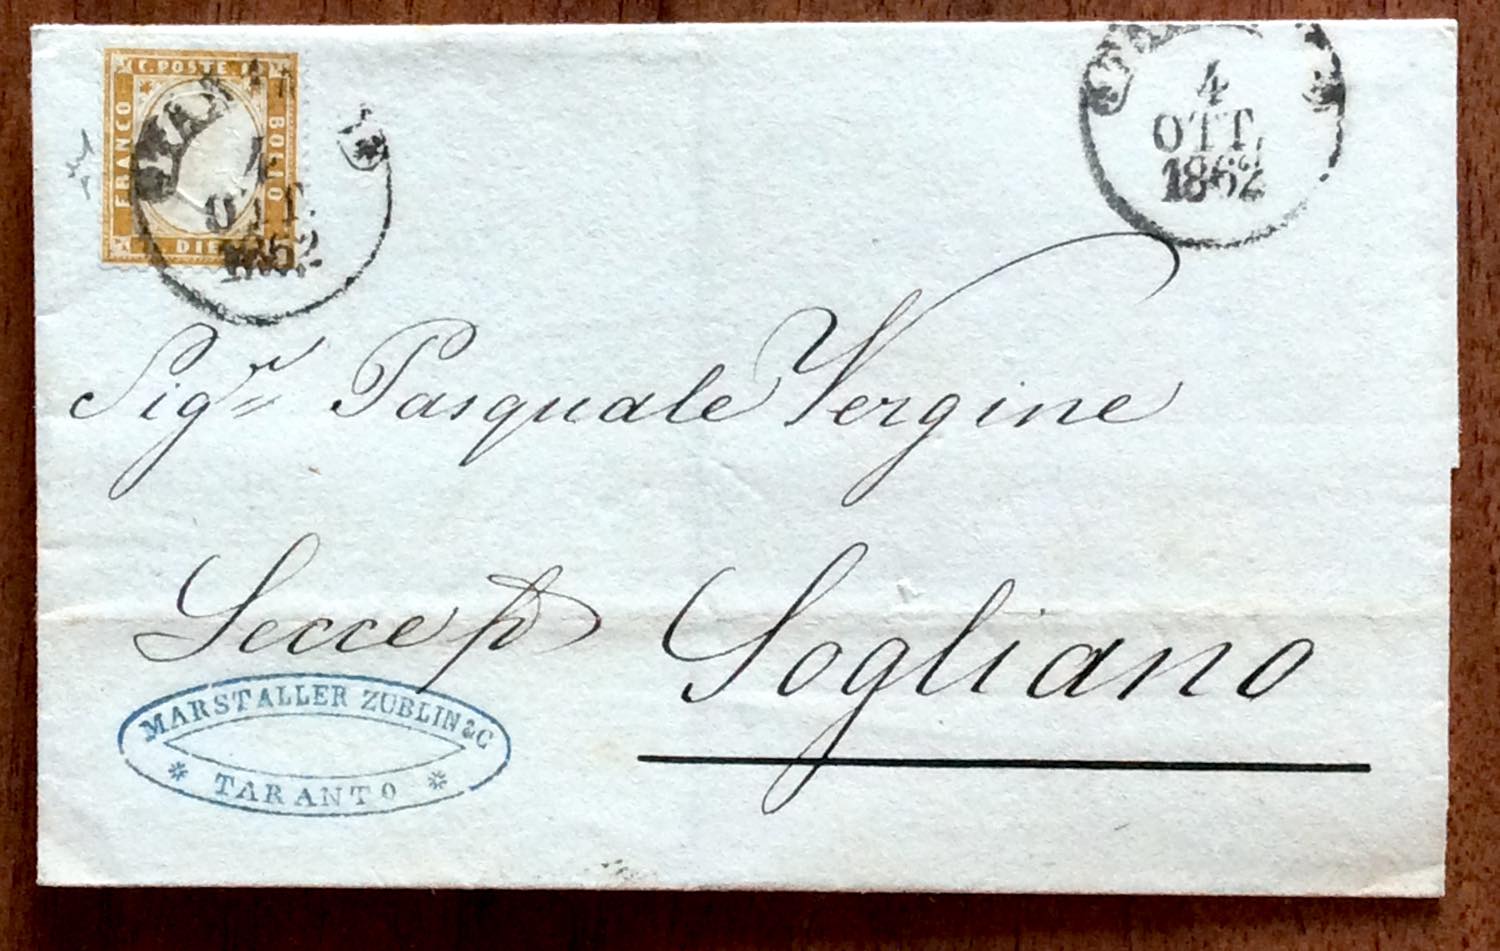 C. POSTE
FRANCO
BOLLO
4
OTT.
1862
4
OTT.
1862
Sigr Pasquale Vergine
Lecce p Sogliano
MARSTALLER ZUBLIN & C
* TARANTO *